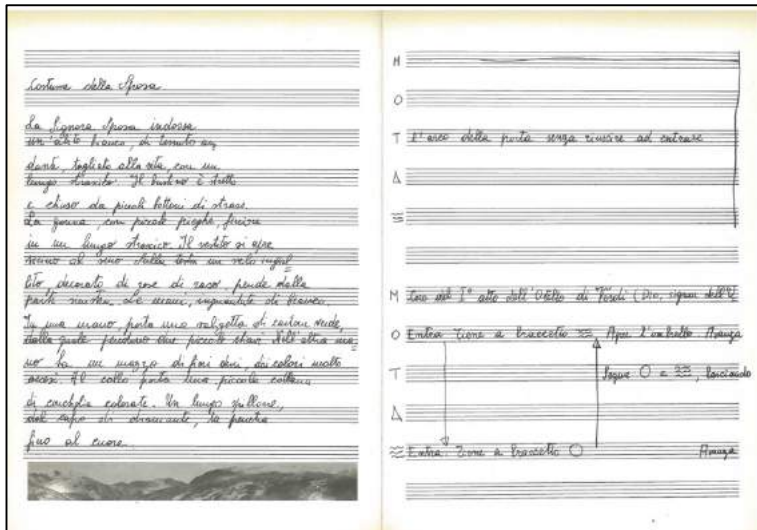 Costume della Sposa
La Signora Sposa indossa
un'abito bianco, di tessuto an
dante, tagliato alla vita, con un
lungo strascico. Il bustino è stretto
e chiuso da piccoli bottoni di strass.
La gonna, con piccole pieghe, finisce
in un lungo strascico. Il vestito si apre
al seno dalla testa un velo
decorato di rose di raso, pende dalla
parte Le mani, inguantate di bianco.
In una mano porta una valigetta di cartone verde,
dalla quale pendono due piccole chiavi. Nell'altra ma=
no ha un mazzo di fiori dai colori molto
accesi. Al collo porta una piccola collana
di conchiglie colorate. Un lungo spillone,
dal capo di diamante, la penetra
fino al cuore.
M
O
T l'arco della porta senza riuscire ad entrare
Δ
M Coro del I° atto dell'Otello di Verdi (Dio,
O Entra. Tiene a braccetto Apre l'ombrello. Avanza
T Segue O e lasciando
Δ
Entra. Tiene a braccetto O Avanza